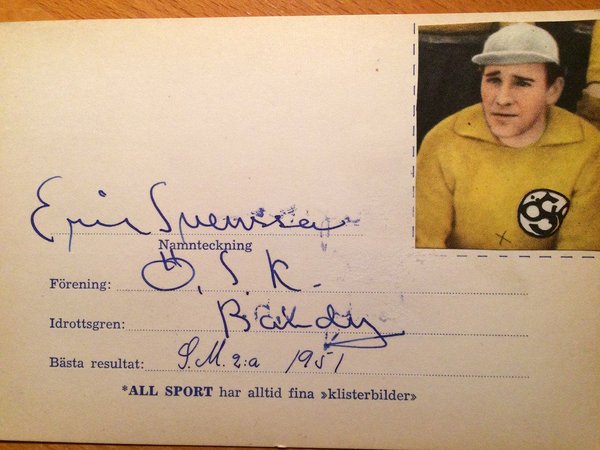 Eric Svensson
Namnteckning
Förening: Ö.S.K.
Idrottsgren: Bandy
Bästa resultat: S.M. 2:a 1951
*ALL SPORT har alltid fina »klisterbilder»